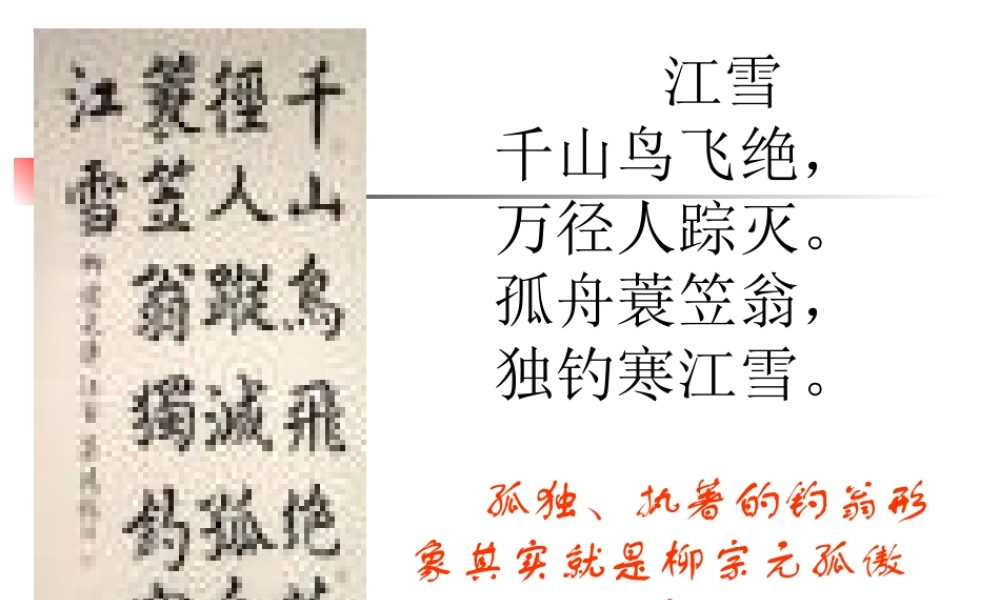 江雪
千山鸟飞绝，
万径人踪灭。
孤舟蓑笠翁，
独钓寒江雪。
孤独、执著的钓翁形
象其实就是柳宗元孤傲
千山鳥飛绝
徑人蹤滅孤
蓑笠翁獨釣
江雪